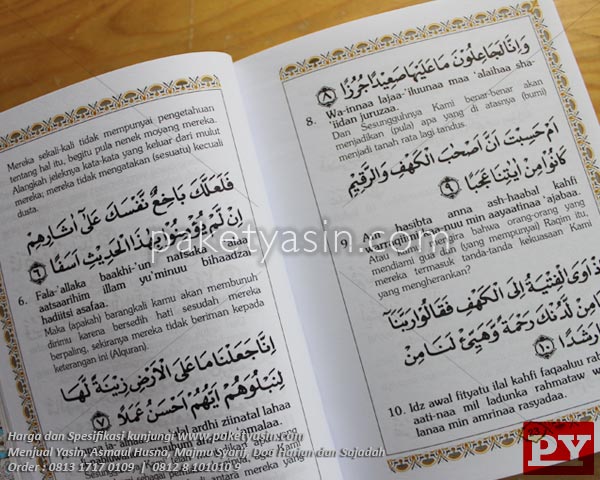 Mereka sekali-kali tidak mempunyai pengetahuan
tentang hal itu, begitu pula nenek moyang mereka.
Alangkah jeleknya kata-kata yang keluar dari mulut
mereka; mereka tidak mengatakan (sesuatu) kecuali
dusta.
فَلَعَلَّكَ بَاخِعٌ نَّفْسَكَ عَلَىٰٓ اٰثَارِهِمْ
اِنْ لَّمْ يُؤْمِنُوْا بِهٰذَا الْحَدِيْثِ اَسَفًا ٦
6. Fala-'allaka baakhi-'un nafsaka 'alaa
aatsaarihim illam yu'minuu bihaadzal
hadiitsi asafaa.
Maka (apakah) barangkali kamu akan membunuh
dirimu karena bersedih hati sesudah mereka
berpaling, sekiranya mereka tidak beriman kepada
keterangan ini (Alquran).
اِنَّا جَعَلْنَا مَا عَلَى الْاَرْضِ زِيْنَةً لَّهَا
لِنَبْلُوَهُمْ اَيُّهُمْ اَحْسَنُ عَمَلًا ٧
alal ardhi ziinatal lahaa
amalaa.
antara mereka yang
وَاِنَّا لَجَاعِلُوْنَ مَا عَلَيْهَا صَعِيْدًا جُرُزًا ٨
8. Wa-innaa lajaa-'iluunaa maa 'alaihaa sha-
'iidan juruzaa.
Dan Sesungguhnya Kami benar-benar akan
menjadikan (pula) apa yang di atasnya (bumi)
menjadi tanah rata lagi tandus.
اَمْ حَسِبْتَ اَنَّ اَصْحٰبَ الْكَهْفِ وَالرَّقِيْمِ
كَانُوْا مِنْ اٰيٰتِنَا عَجَبًا ٩
9. Am hasibta anna ash-haabal kahfi
warraqiimi kaanuu min aayaatinaa 'ajabaa.
Atau kamu mengira bahwa orang-orang yang
mendiami gua dan (yang mempunyai) Raqim itu,
mereka termasuk tanda-tanda kekuasaan Kami
yang mengherankan?
اِذْ اَوَى الْفِتْيَةُ اِلَى الْكَهْفِ فَقَالُوْا رَبَّنَآ
مِنْ لَّدُنْكَ رَحْمَةً وَّهَيِّئْ لَنَا مِنْ
رَشَدًا ١٠
10. Idz awal fityatu ilal kahfi faqaaluu
aati-naa mil ladunka rahmataw
lanaa min amrinaa rasyadaa.
paketyasin.com
Harga dan Spesifikasi kunjungi www.paketyasin.com
Menjual Yasin, Asmaul Husna, Majmu Syarif, Doa Harian dan Sajadah
Order : 0813 1717 0109 | 0812 8 101010 9
PY